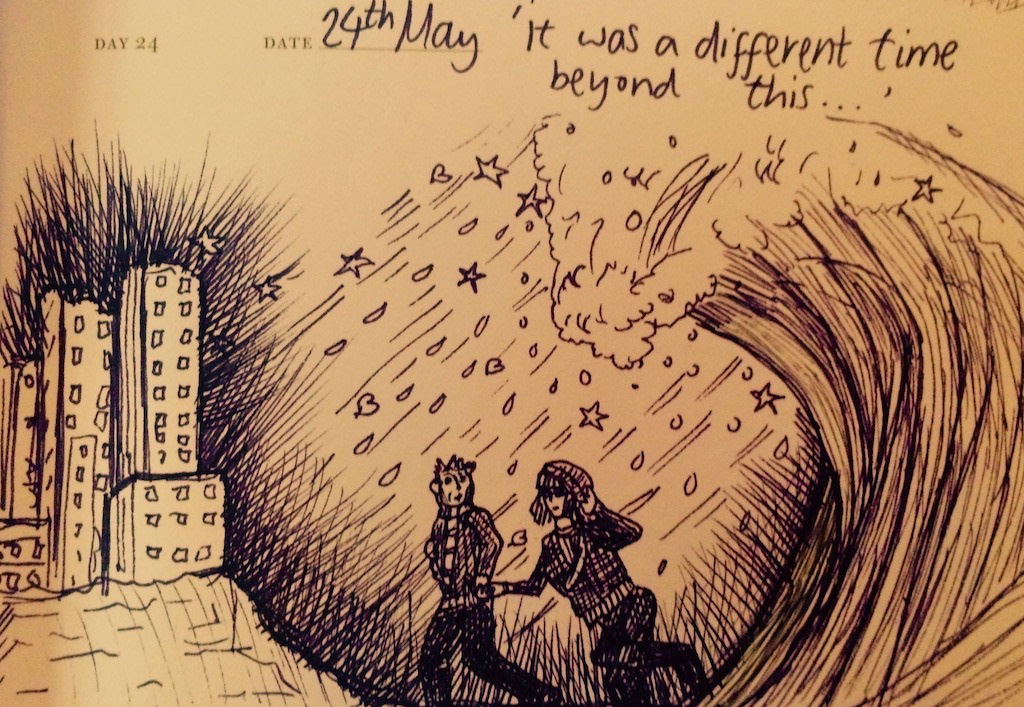 DAY 24 DATE 24th May 'it was a different time
beyond this...'